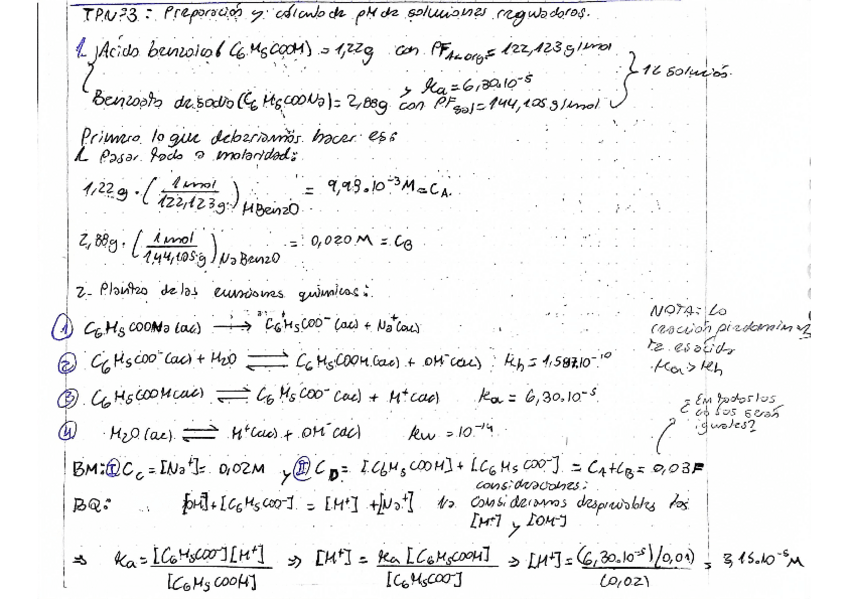 TPNº3: Preparación y cálculo de pH de soluciones reguladoras.
1. Ácido benzoico (C6H5COOH) = 1,22g con PF Ac. org = 122,123 g/mol
y Ka = 6,30.10^-5
} 1L solución.
Benzoato de sodio (C6H5COONa) = 2,88g con PF sal = 144,105 g/mol
Primero lo que deberíamos hacer es:
1. Pasar todo a molaridad:
1,22g . (1mol / 122,123g) HBenzO = 9,99.10^-3 M = CA.
2,88g . (1mol / 144,105g) NaBenzO = 0,020 M = CB
2- Planteo de las ecuaciones químicas:
① C6H5COONa (ac) → C6H5COO^- (ac) + Na^+ (ac)
② C6H5COO^- (ac) + H2O ⇌ C6H5COOH (ac) + OH^- (ac) Kh = 1,587.10^-10
③ C6H5COOH (ac) ⇌ C6H5COO^- (ac) + H^+ (ac) Ka = 6,30.10^-5
④ H2O (ac) ⇌ H^+ (ac) + OH^- (ac) Kw = 10^-14
NOTA: La
reacción predominan
te es ácida
Ka > Kh
¿En todos los
casos serán
iguales?
BM: Ⓘ Cc = [Na^+] = 0,02M y Ⓘ Ⓘ CD = [C6H5COOH] + [C6H5COO^-] = CA + CB = 0,03F
consideraciones:
BQ: [OH^-] + [C6H5COO^-] = [H^+] + [Na^+] consideramos despreciables los
[H^+] y [OH^-]
⇒ Ka = [C6H5COO^-][H^+] / [C6H5COOH] ⇒ [H^+] = Ka [C6H5COOH] / [C6H5COO^-] ⇒ [H^+] = (6,30.10^-5)(0,01) / (0,02) = 3,15.10^-5 M